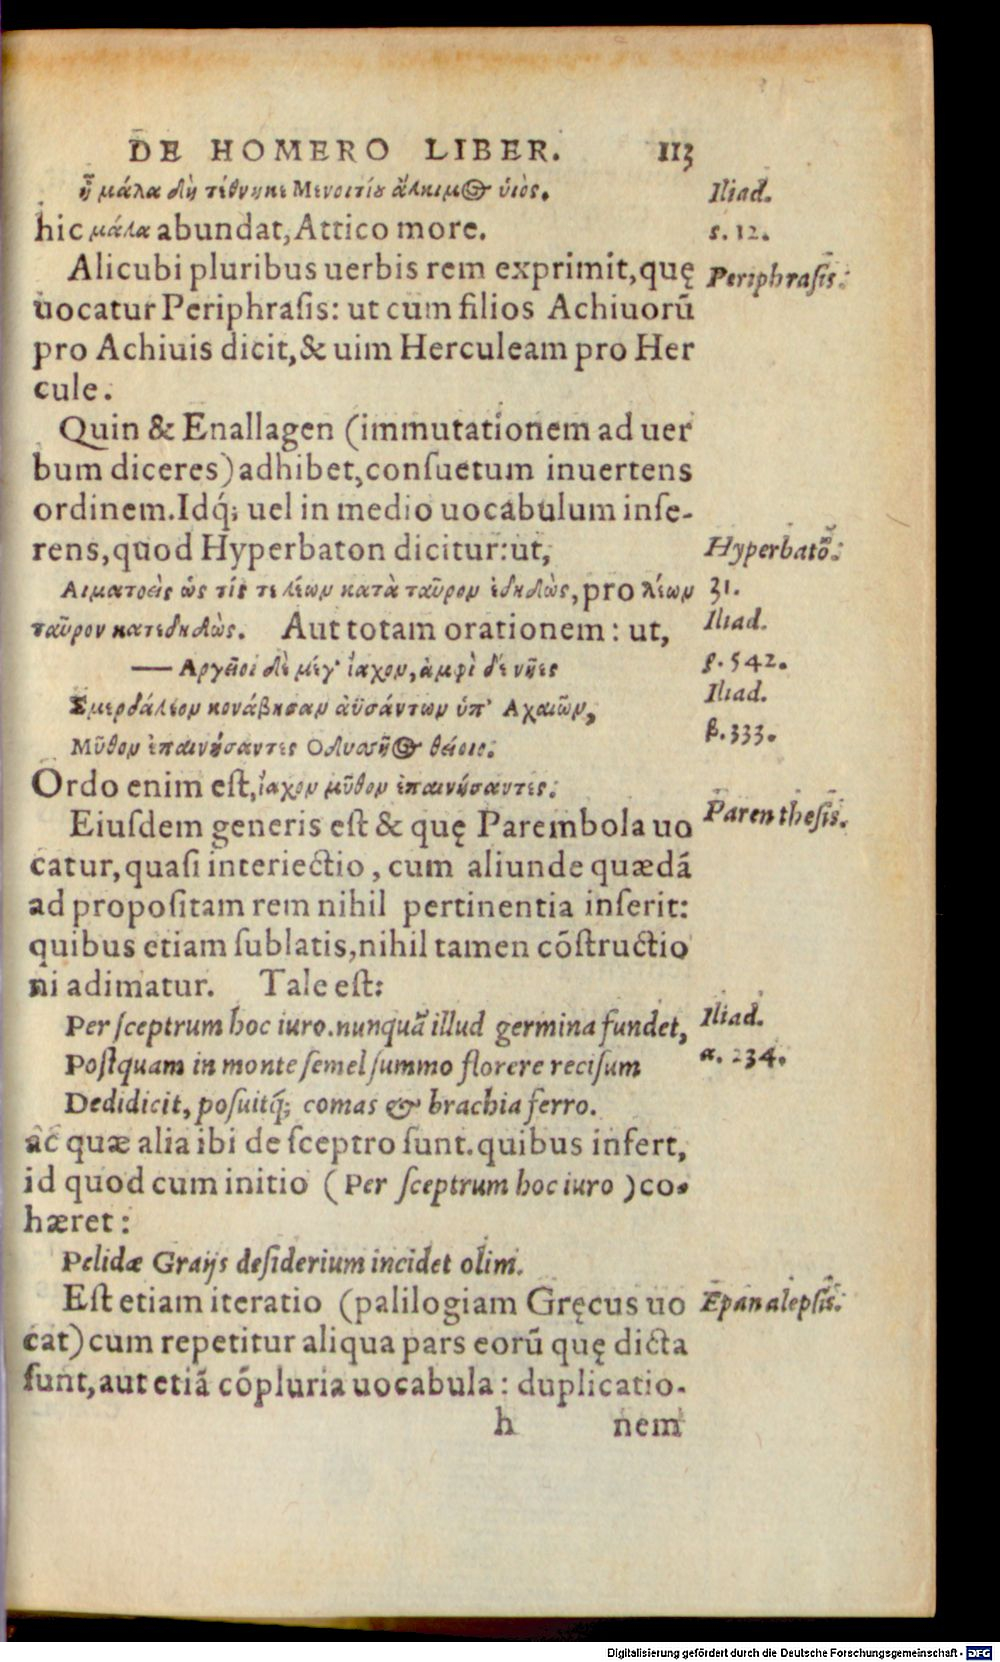 DE HOMERO LIBER. 113
ἦ μάλα δὴ τέθνηκε Μενοιτίȣ ἄλκιμος ὑιός. Iliad.
hic μάλα abundat, Attico more. σ. 12.
Alicubi pluribus uerbis rem exprimit, quę Periphrasis.
uocatur Periphrasis: ut cum filios Achiuorũ
pro Achiuis dicit, & uim Herculeam pro Her
cule.
Quin & Enallagen (immutationem ad uer
bum diceres) adhibet, consuetum inuertens
ordinem. Idq́; uel in medio uocabulum inse-
rens, quod Hyperbaton dicitur: ut, Hyperbatõ.
Αιματοεὶς ὡς τίς τε λέων κατὰ ταῦρον ἐδηδὼς, pro λέων 31.
ταῦρον κατεδηδὼς. Aut totam orationem: ut, Iliad.
— Αργεῖοι δὲ μέγ' ἴαχον, ἀμφὶ δέ νῆες ρ. 542.
Σμερδάλεον κονάβησαν ἀϋσάντων ὑπ' Αχαιῶν, Iliad.
Μῦθον ἐπαινήσαντες Οδυσῆος θείοιο. β. 333.
Ordo enim est, ἴαχον μῦθον ἐπαινήσαντες.
Eiusdem generis est & quę Parembola uo Parenthesis.
catur, quasi interiectio, cum aliunde quædã
ad propositam rem nihil pertinentia inserit:
quibus etiam sublatis, nihil tamen cõstructio
ni adimatur. Tale est:
Per sceptrum hoc iuro. nunquã illud germina fundet, Iliad.
Postquam in monte semel summo florere recisum α. 234.
Dedidicit, posuitq́; comas & brachia ferro.
ac quæ alia ibi de sceptro sunt. quibus infert,
id quod cum initio (Per sceptrum hoc iuro) co-
hæret:
Pelidæ Graijs desiderium incidet olim.
Est etiam iteratio (palilogiam Gręcus uo Epanalepsis.
cat) cum repetitur aliqua pars eorũ quę dicta
sunt, aut etiã cõpluria uocabula: duplicatio-
h nem
Digitalisierung gefördert durch die Deutsche Forschungsgemeinschaft - DFG